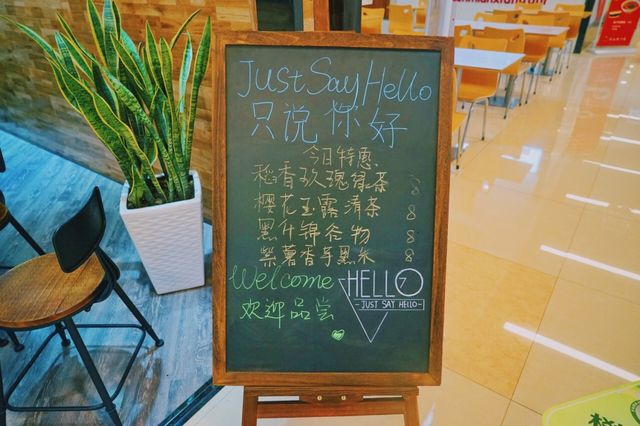 Just Say Hello
只说你好
今日特惠
稻香玫瑰绿茶 8
樱花玉露清茶 8
黑什锦谷物 8
紫薯香芋黑米 8
Welcome
欢迎品尝
HELLO
JUST SAY HELLO